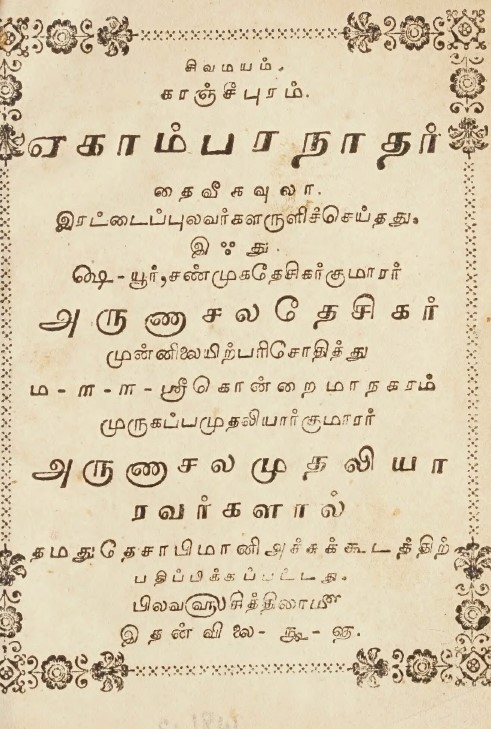 சிவமயம்.
காஞ்சீபுரம்.
ஏகாம்பரநாதர்
தைவீகவுலா.
இரட்டைப்புலவர்களருளிச்செய்தது.
இஃது.
ஷெ-யூர், சண்முகதேசிகர்குமாரர்
அருணாசலதேசிகர்
முன்னிலையிற்பரிசோதித்து
ம-ள-ள-ஸ்ரீகொன்றைமாநகரம்
முருகப்பமுதலியார்குமாரர்
அருணாசலமுதலியா
ரவர்களால்
தமதுதேசாபிமானிஅச்சுக்கூடத்திற்
பதிப்பிக்கப்பட்டது.
பிலவ௵சித்திரை௴
இதன்விலை-